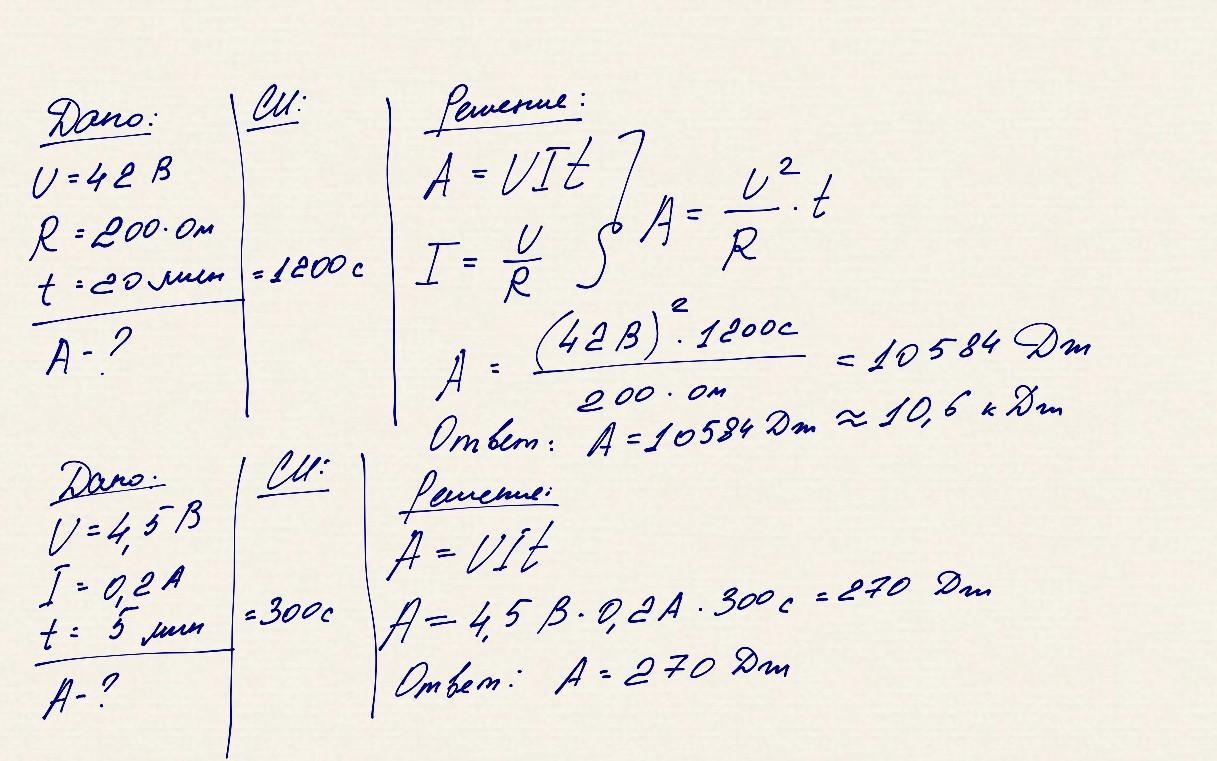 Дано:
U = 42 В
R = 200 · Ом
t = 20 мин
A - ?
СИ:
= 1200 с
Решение:
A = UIt
I = U/R
A = U²/R · t
A = (42 В)² · 1200 с / 200 · Ом = 10584 Дж
Ответ: A = 10584 Дж ≈ 10,6 кДж
Дано:
U = 4,5 В
I = 0,2 А
t = 5 мин
A - ?
СИ:
= 300 с
Решение:
A = UIt
A = 4,5 В · 0,2 А · 300 с = 270 Дж
Ответ: A = 270 Дж